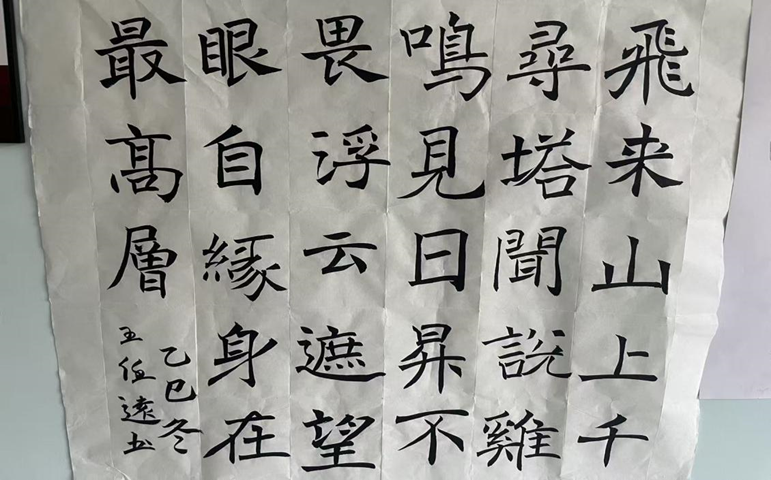 飛来山上千
尋塔聞説雞
鳴見日昇不
畏浮云遮望
眼自緣身在
最髙層
乙巳冬
王伍遠书